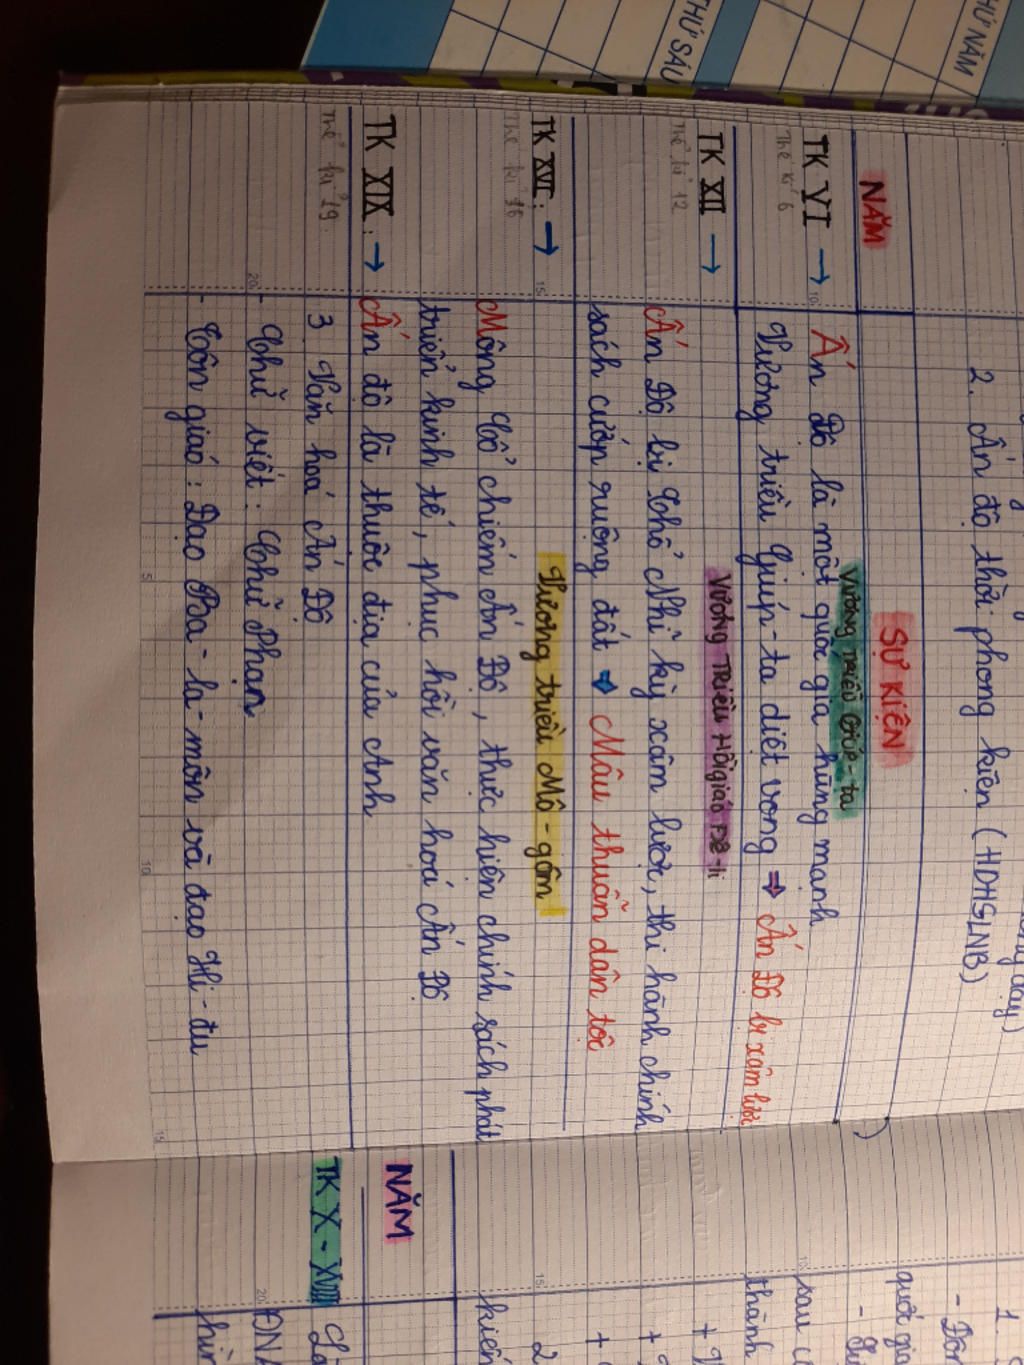 THỨ SÁU
THỨ NĂM
dạy)
2. Ấn độ thời phong kiến (HDHSLNB)
NĂM
SỰ KIỆN
Vương Triều Giúp-ta
TK VI →
Ấn Độ là một quốc gia hùng mạnh
Thế kỉ 6
Vương triều Giúp-ta diệt vong ⇒ Ấn Độ bị xâm lược
Vương Triều Hồi giáo Đê-li
TK XII →
Thế kỉ 12
Ấn Độ bị Thổ Nhĩ Kỳ xâm lược, thi hành chính
sách cướp ruộng đất ⇒ Mâu thuẫn dân tộc
Vương triều Mô-gôn
TK XVI: →
Thế kỉ 16
Mông Cổ chiếm Ấn Độ, thực hiện chính sách phát
triển kinh tế, phục hồi văn hoá Ấn Độ
TK XIX: →
Ấn độ là thuộc địa của Anh
Thế kỉ 19.
3. Văn hoá Ấn Độ
- Chữ viết: Chữ Phạn
- Tôn giaó: Đạo Bà-la-môn và đạo Hi-đu
1.
quốc gia
sau
thành
2.
kiến
NĂM
TK X - XVIII
ĐNA